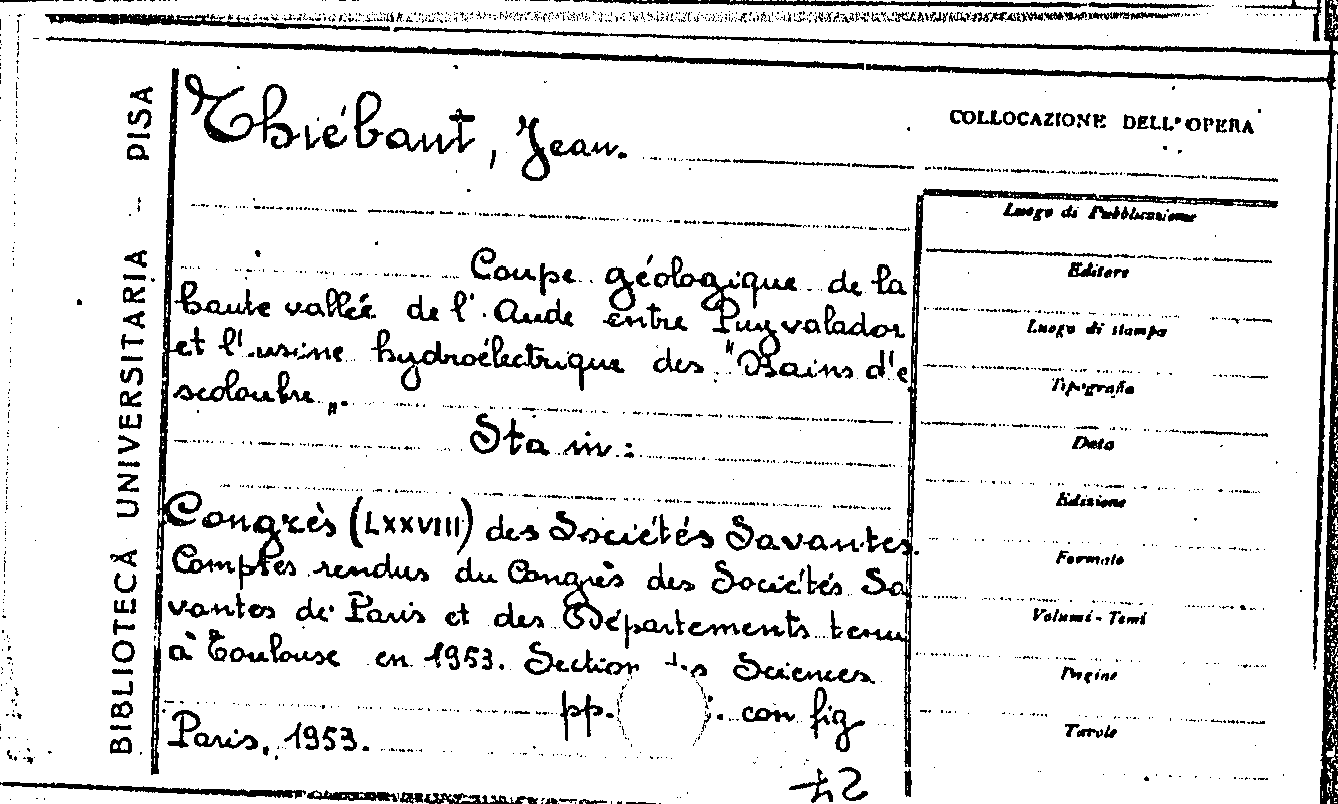 BIBLIOTECA UNIVERSITARIA – PISA
Thiébaut, Jean.
COLLOCAZIONE DELL'OPERA
Coupe géologique de la
haute vallée de l'Aude entre Puyvalador
et l'usine hydroélectrique des "Bains d'e
scoloubre„.
Sta in:
Congrès (LXXVIII) des Sociétés Savantes.
Comptes rendus du Congrès des Sociétés Sa
vantes de Paris et des Départements tenu
à Toulouse en 1953. Section des Sciences
pp. con fig
Paris, 1953.
Luogo di Pubblicazione
Editore
Luogo di stampa
Tipografia
Data
Edizione
Formato
Volumi - Tomi
Pagine
Tavole